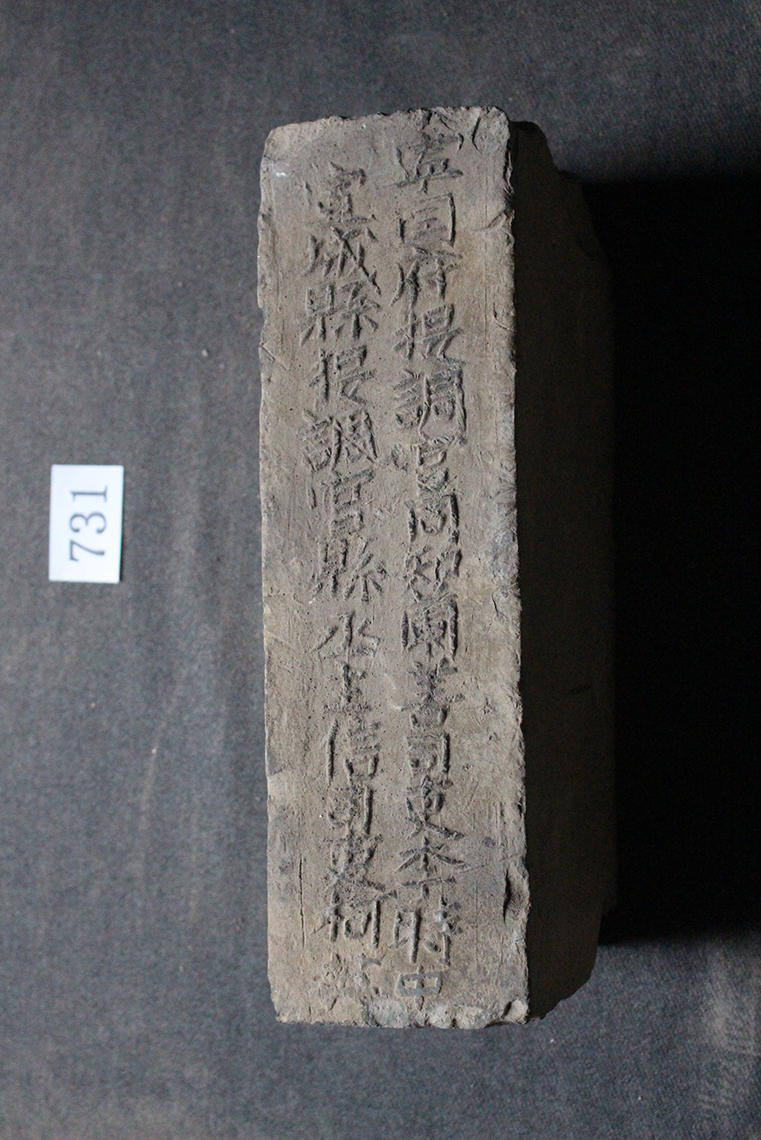 寧囯府提調官同知蘭善司吏李時中
宣城縣提調官縣丞王信司吏何
731